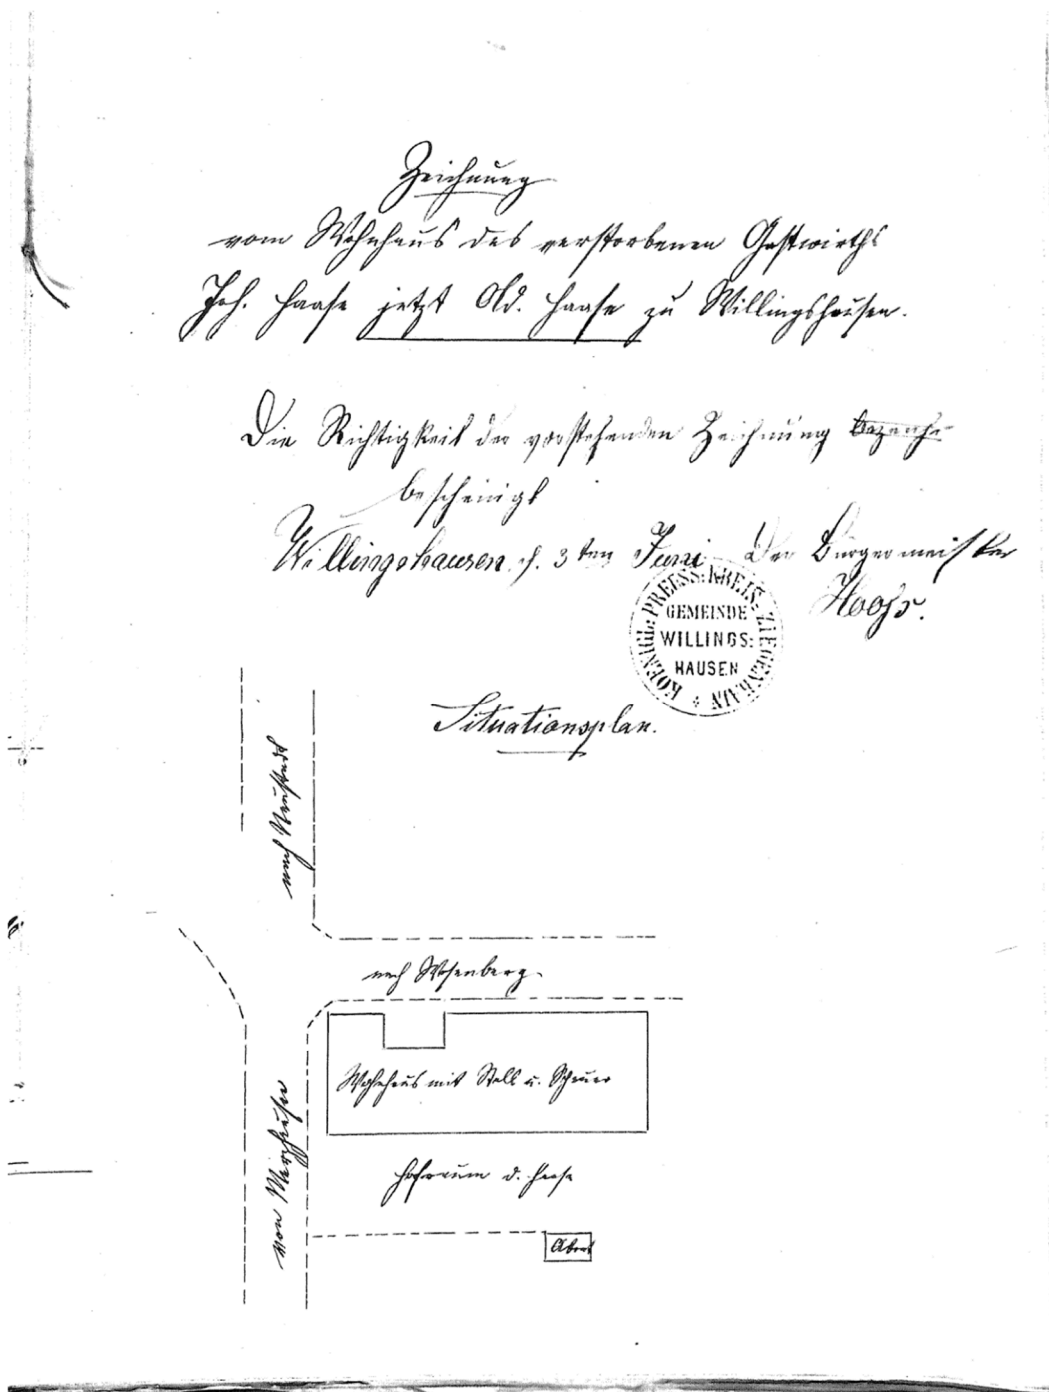 Zeichnung
vom Wohnhaus des verstorbenen Gastwirths
Joh. Haase jetzt Old. Haase zu Willingshausen.
Die Richtigkeit der vorstehenden Zeichnung
bescheinigt
Willingshausen, d. 3ten Juni Der Bürgermeister
Hooss.
KOENIGL: PREUSS: KREIS: ZIEGENHAIN
GEMEINDE
WILLINGS:
HAUSEN
Situationsplan.
nach Neustadt
nach Wasenberg.
Wohnhaus mit Stall u. Scheuer
von Merzhausen
Hofraum d. Haase
Abort